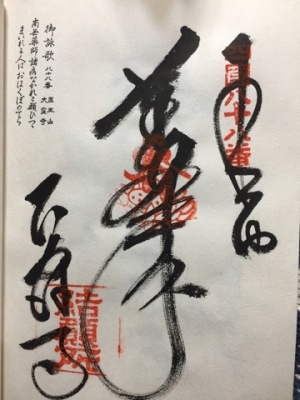 四國八十八番
奉納
大窪寺
結願所
御詠歌 八十八番 医王山
大窪寺
南無薬師諸病なかれと願ひつつ
まいれる人はおほくぼのてら